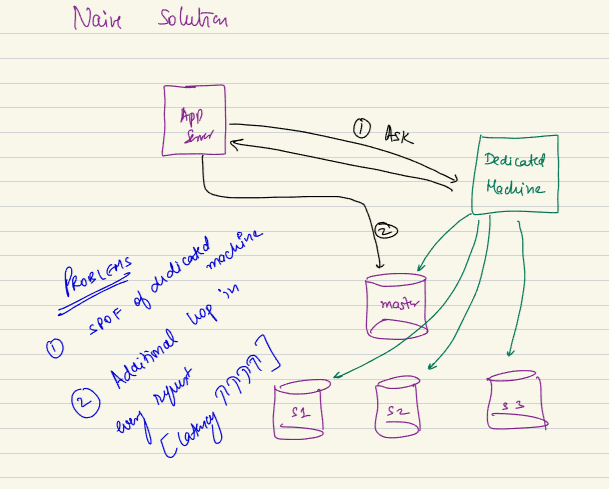 Naive Solution
App
Server
① ASK
Dedicated
Machine
②
master
S1
S2
S3
PROBLEMS
① SPOF of dedicated machine
② Additional hop in
every request
[latency ↑↑↑↑]